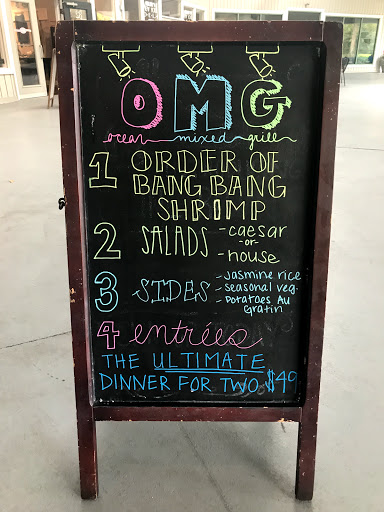 OMG
ocean mixed grille
1 ORDER OF
BANG BANG
SHRIMP
2 SALADS - caesar
-or-
- house
3 SIDES - Jasmine rice
- seasonal veg.
- Potatoes Au
Gratin
4 entrées
THE ULTIMATE
DINNER FOR TWO $49